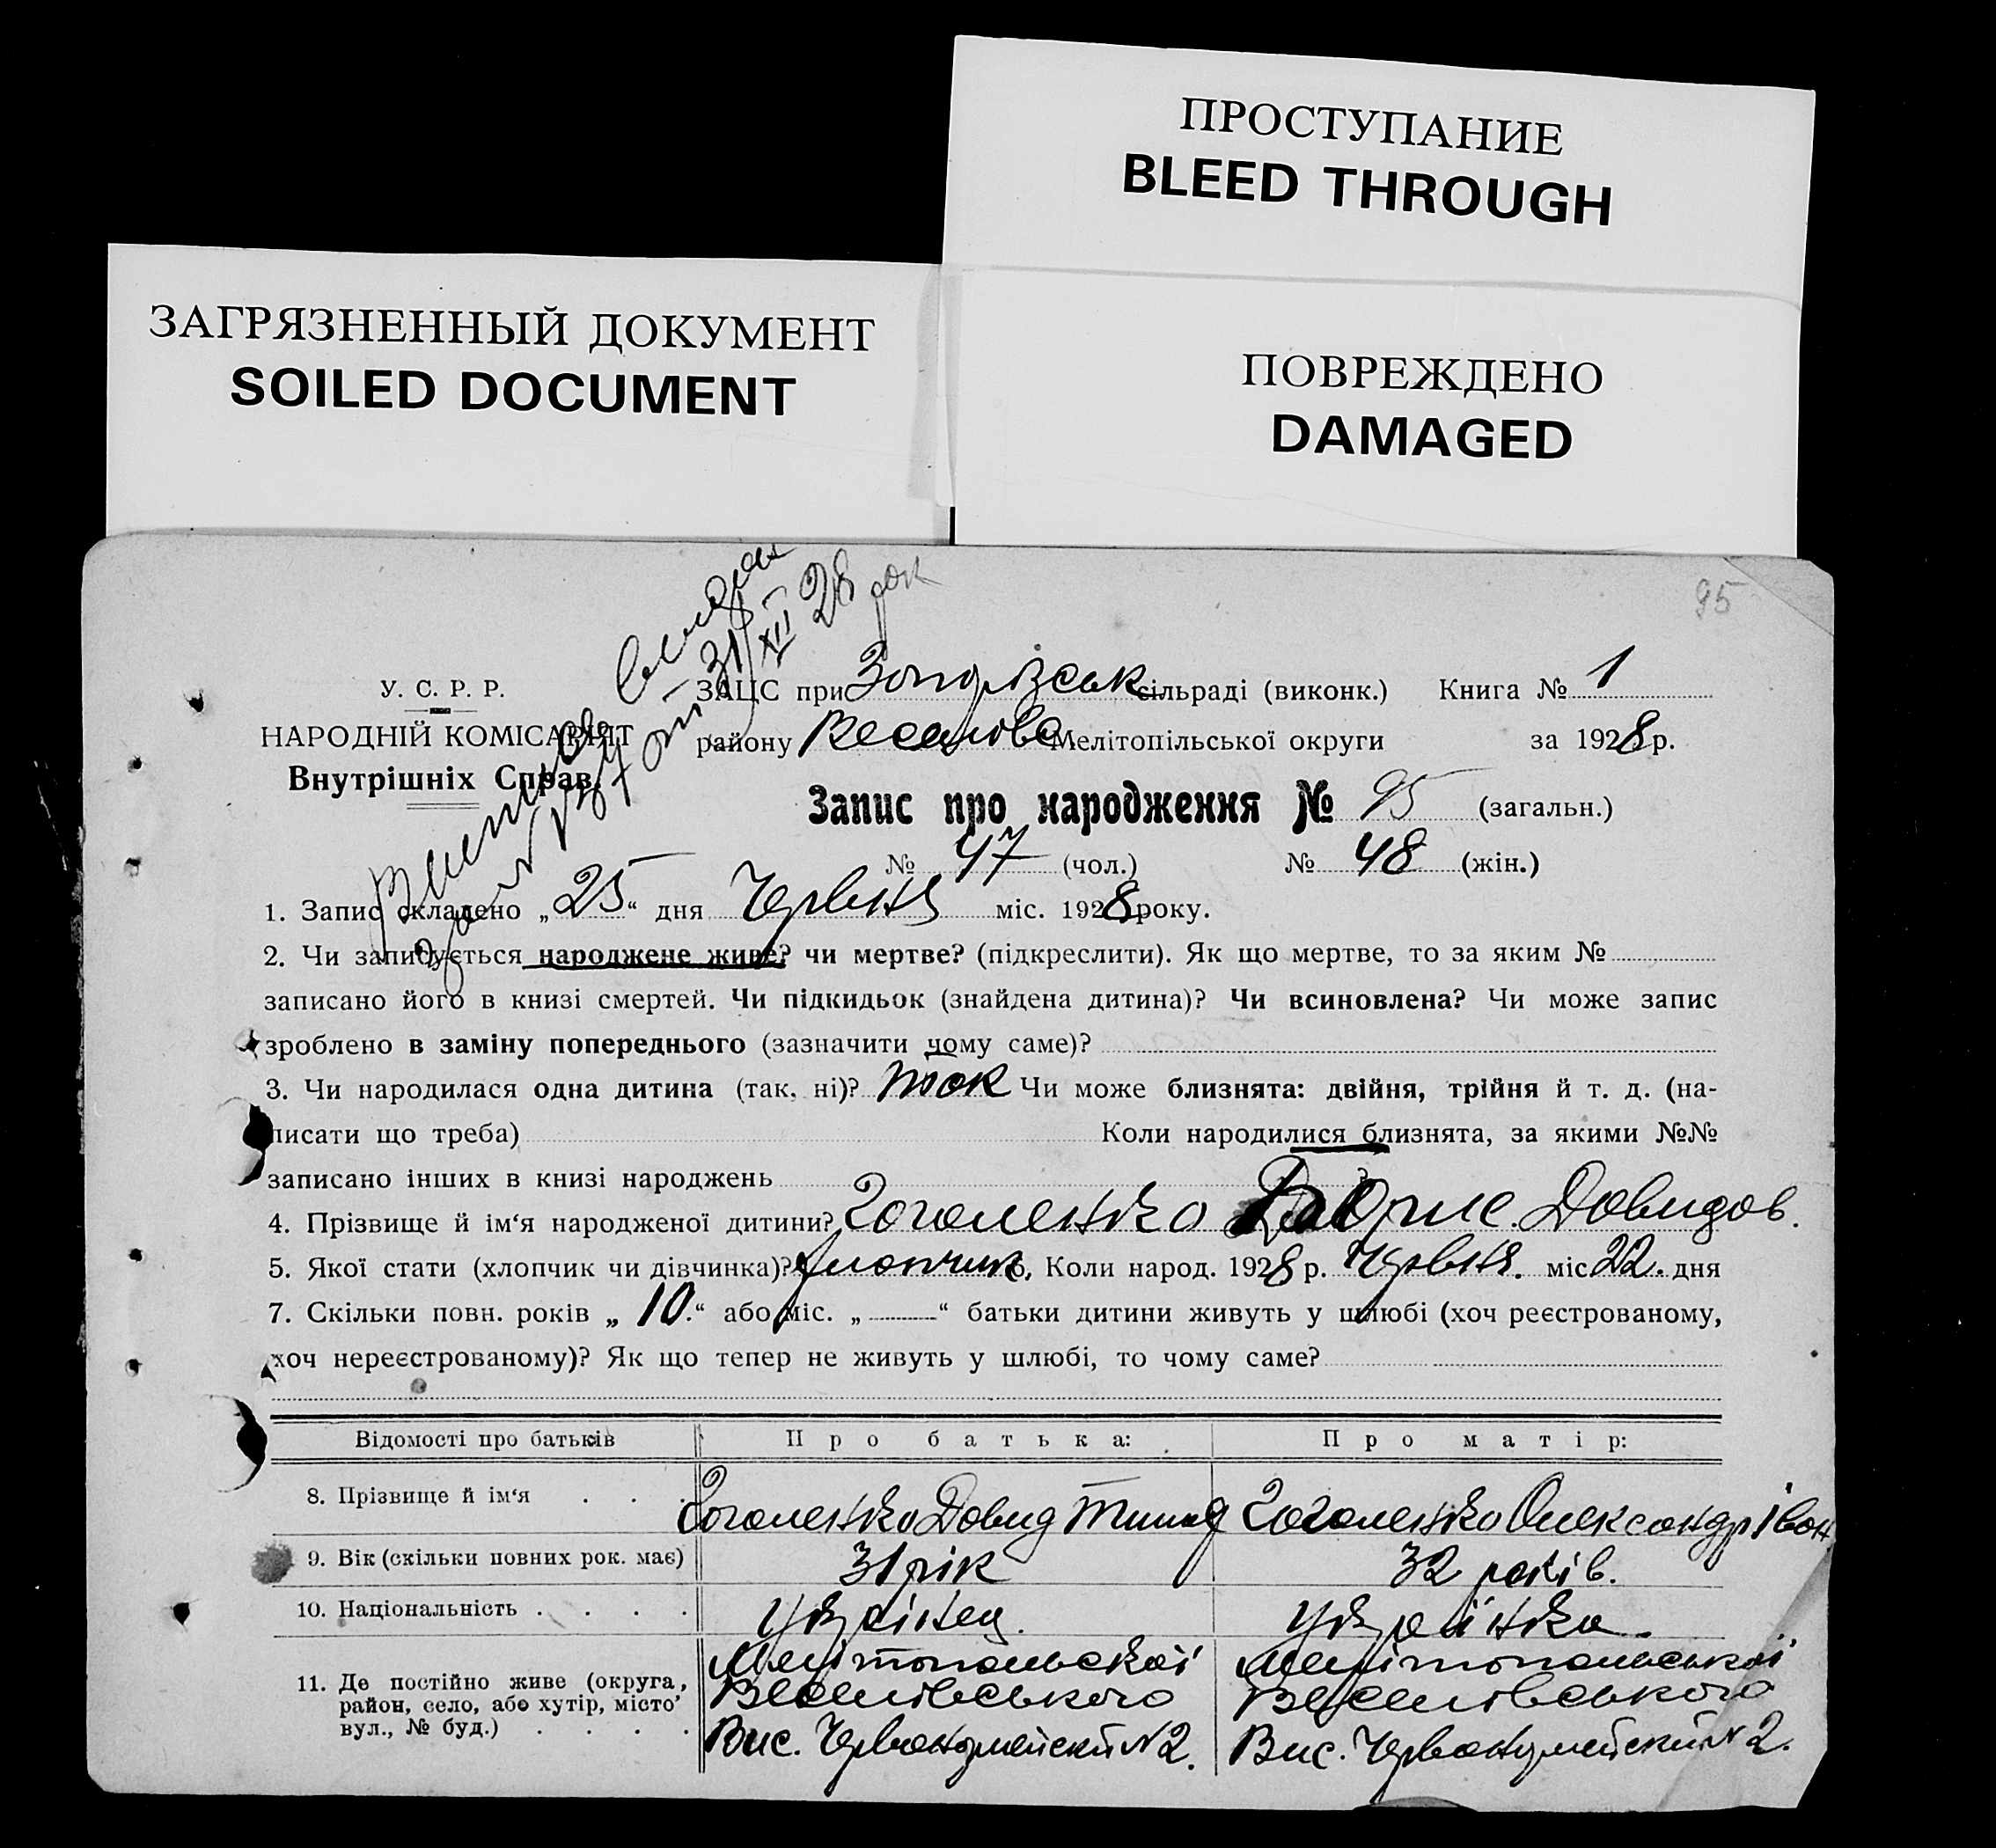 ПРОСТУПАНИЕ
BLEED THROUGH
ЗАГРЯЗНЕННЫЙ ДОКУМЕНТ
SOILED DOCUMENT
ПОВРЕЖДЕНО
DAMAGED
95
31/XII 28 рок
У. С. Р. Р.
НАРОДНІЙ КОМІСАРІЯТ
Внутрішніх Справ.
ЗАЦС при сільраді (виконк.) Книга № 1
району Веселівс Мелітопільської округи за 1928 р.
Запис про народження № 95 (загальн.)
№ 47 (чол.) № 48 (жін.)
1. Запис складено „25“ дня Червня міс. 1928 року.
2. Чи записується народжене живе? чи мертве? (підкреслити). Як що мертве, то за яким №
записано його в книзі смертей. Чи підкидьок (знайдена дитина)? Чи всиновлена? Чи може запис
зроблено в заміну попереднього (зазначити чому саме)?
3. Чи народилася одна дитина (так, ні)? так Чи може близнята: двійня, трійня й т. д. (на-
писати що треба) Коли народилися близнята, за якими №№
записано інших в книзі народжень ?
4. Прізвище й ім‘я народженої дитини? Гоголенко Борис Довидов.
5. Якої стати (хлопчик чи дівчинка)? хлопчик 6. Коли народ. 1928 р. Червня. міс 22. дня
7. Скільки повн. років „10.“ або міс. „ “ батьки дитини живуть у шлюбі (хоч реєстрованому,
хоч нереєстрованому)? Як що тепер не живуть у шлюбі, то чому саме?
Відомості про батьків Про батька: Про матір:
8. Прізвище й ім‘я . . . Гоголенко Довид Гоголенко Олександр Іван
9. Вік (скільки повних рок. має) 31 рік 32 років.
10. Національність . . . . Українец. Українка.
11. Де постійно живе (округа, Мелітопольської Мелітопольської
район, село, або хутір, місто Веселівського Веселівського
вул., № буд.) . . . . Вис. Червоноармейский №2. Вис. Червоноармейский №2.